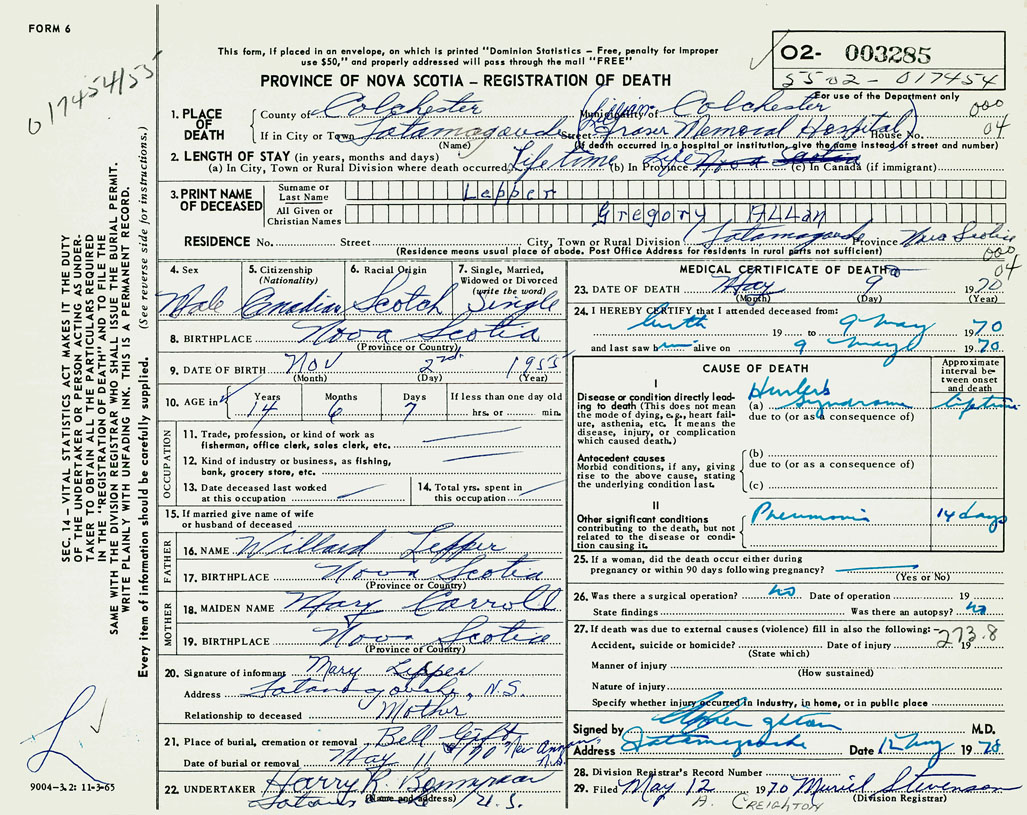 FORM 6
017454/55
This form, if placed in an envelope, on which is printed "Dominion Statistics – Free, penalty for improper
use $50," and properly addressed will pass through the mail "FREE"
PROVINCE OF NOVA SCOTIA – REGISTRATION OF DEATH
02- 003285
5502-017454
For use of the Department only
1. PLACE OF DEATH
County of Colchester Municipality of Colchester 000
If in City or Town Tatamagouche Street Lillian Fraser Memorial Hospital House No. 04
(Name) (If death occurred in a hospital or institution, give the name instead of street and number)
2. LENGTH OF STAY (in years, months and days)
(a) In City, Town or Rural Division where death occurred Lifetime (b) In Province Life Nova Scotia (c) In Canada (if immigrant)
3. PRINT NAME OF DECEASED
Surname or Last Name Lepper
All Given or Christian Names Gregory Allan
RESIDENCE No. Street City, Town or Rural Division Tatamagouche Province Nova Scotia
(Residence means usual place of abode. Post Office Address for residents in rural parts not sufficient)
000
04
4. Sex Male
5. Citizenship (Nationality) Canadian
6. Racial Origin Scotch
7. Single, Married, Widowed or Divorced (write the word) Single
8. BIRTHPLACE Nova Scotia
(Province or Country)
9. DATE OF BIRTH Nov 2nd 1955
(Month) (Day) (Year)
10. AGE in Years Months Days If less than one day old
14 6 7 hrs. or min.
OCCUPATION
11. Trade, profession, or kind of work as
fisherman, office clerk, sales clerk, etc.
12. Kind of industry or business, as fishing,
bank, grocery store, etc.
13. Date deceased last worked
at this occupation
14. Total yrs. spent in
this occupation
15. If married give name of wife
or husband of deceased
FATHER
16. NAME Willard Lepper
17. BIRTHPLACE Nova Scotia
(Province or Country)
MOTHER
18. MAIDEN NAME Mary Carroll
19. BIRTHPLACE Nova Scotia
(Province or Country)
20. Signature of informant Mary Lepper
Address Tatamagouche, N.S.
Relationship to deceased Mother
21. Place of burial, cremation or removal Bell Grft New Annan
Date of burial or removal May 11 1970 N.S.
22. UNDERTAKER Harry R.
(Name and address) N.S.
MEDICAL CERTIFICATE OF DEATH
23. DATE OF DEATH May 9 1970
(Month) (Day) (Year)
24. I HEREBY CERTIFY that I attended deceased from:
birth 19 to 9 May 1970
and last saw him alive on 9 May 1970
CAUSE OF DEATH
Approximate interval between onset and death
I
Disease or condition directly leading
to death (This does not mean
the mode of dying, e.g., heart failure,
asthenia, etc. It means the
disease, injury, or complication
which caused death.)
(a) Hurlers Syndrome lifetime
due to (or as a consequence of)
Antecedent causes
Morbid conditions, if any, giving
rise to the above cause, stating
the underlying condition last.
(b)
due to (or as a consequence of)
(c)
II
Other significant conditions
contributing to the death, but not
related to the disease or condition
causing it.
Pneumonia 14 days
25. If a woman, did the death occur either during
pregnancy or within 90 days following pregnancy?
(Yes or No)
26. Was there a surgical operation? no Date of operation 19
State findings Was there an autopsy? no
27. If death was due to external causes (violence) fill in also the following:–
273.8
Accident, suicide or homicide? Date of injury 19
(State which)
Manner of injury
(How sustained)
Nature of injury
Specify whether injury occurred in industry, in home, or in public place
Signed by M.D.
Address Tatamagouche Date 12 May 1970
28. Division Registrar's Record Number
29. Filed May 12 1970 Muriel Stevenson
(Division Registrar)
A. CREIGHTON
SEC. 14 – VITAL STATISTICS ACT MAKES IT THE DUTY
OF THE UNDERTAKER OR PERSON ACTING AS UNDER-
TAKER TO OBTAIN ALL THE PARTICULARS REQUIRED
IN THE "REGISTRATION OF DEATH" AND TO FILE THE
SAME WITH THE DIVISION REGISTRAR WHO SHALL ISSUE THE BURIAL PERMIT.
WRITE PLAINLY WITH UNFADING INK. THIS IS A PERMANENT RECORD.
Every item of information should be carefully supplied. (See reverse side for instructions.)
9004-3.2: 11-3-65